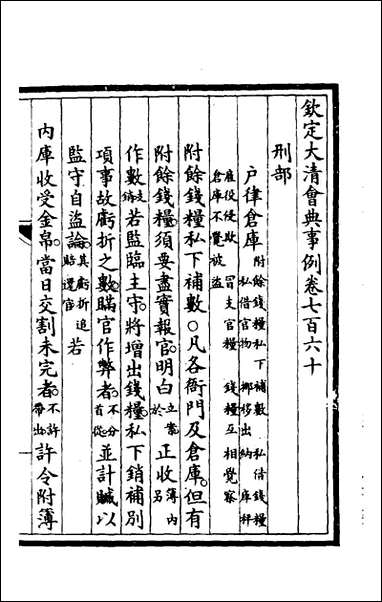 欽定大清會典事例卷七百六十
刑部
户律倉庫附餘錢糧私下補數 私借錢糧 私借官物 挪移出納 庫秤
雇役侵欺 冒支官糧 錢糧互相覺察 倉庫不覺被盜
附餘錢糧私下補數○凡各衙門及倉庫。但有
附餘錢糧。須要盡實報官。明白立案於正收簿内另
作數支銷。若監臨主守。將增出錢糧私下銷補別
項事故虧折之數。瞞官作弊者。不分首從。並計贓以
監守自盜論。其虧折追賠還官。若
內庫收受金帛。當日交割未完者。不許帶出。許令附簿